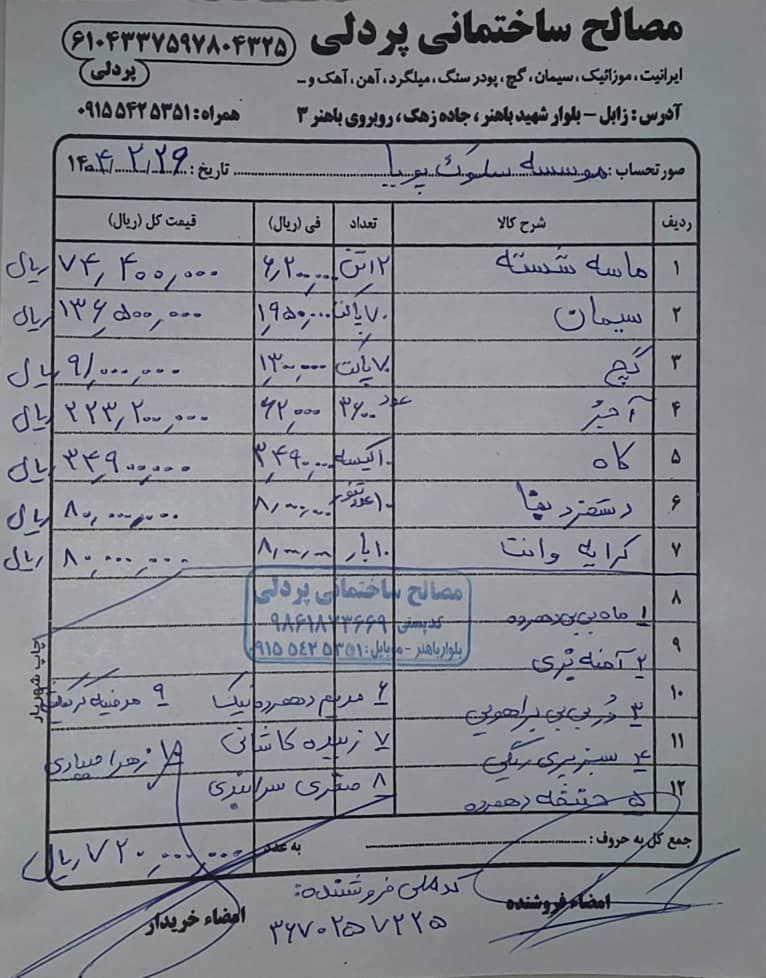 مصالح ساختمانی پردلی
۶۱۰۴۳۳۷۵۹۷۸۰۴۳۲۵
پردلی
ایرانیت، موزائیک، سیمان، گچ، پودر سنگ، میلگرد، آهن، آهک و...
آدرس: زابل - بلوار شهید باهنر، جاده زهک، روبروی باهنر ۳ همراه: ۰۹۱۵۵۴۲۵۳۵۱
صورتحساب: موسسه سلوک پویا تاریخ: ۱۴۰۴/۲/۲۶
ردیف شرح کالا تعداد فی (ریال) قیمت کل (ریال)
۱ ماسه شسته ۱۲تن ۶,۲۰۰,۰۰۰ ۷۴,۴۰۰,۰۰۰ ریال
۲ سیمان ۷۰پاکت ۱,۹۵۰,۰۰۰ ۱۳۶,۵۰۰,۰۰۰ ریال
۳ گچ ۷۰پاکت ۱,۳۰۰,۰۰۰ ۹۱,۰۰۰,۰۰۰ ریال
۴ آجر ۳۶۰۰ عدد ۶۲,۰۰۰ ۲۲۳,۲۰۰,۰۰۰ ریال
۵ کاه ۱۰کیسه ۳,۴۹۰,۰۰۰ ۳۴,۹۰۰,۰۰۰ ریال
۶ دستمزد بنا ۱۰عدد تنور ۸,۰۰۰,۰۰۰ ۸۰,۰۰۰,۰۰۰ ریال
۷ کرایه وانت ۱۰بار ۸,۰۰۰,۰۰۰ ۸۰,۰۰۰,۰۰۰ ریال
مصالح ساختمانی پردلی
کدپستی ۹۸۶۱۸۷۳۶۶۹
بلوار باهنر - موبایل: ۰۹۱۵۵۴۲۵۳۵۱
۸ ۱ ماه بی بی دهمرده
۹ ۲ آمنه تری
۱۰ ۳ در بی بی براهویی ۶ مریم دهمرده نیکا ۹ مرضیه
۱۱ ۴ سبز پری ریگی ۷ زبیده کاشانی ۱۰ زهرا صیادی
۱۲ ۵ دهمرده ۸ صغری
چاپ شهریار
جمع کل به حروف: به عدد ۷۲۰,۰۰۰,۰۰۰ ریال
امضاء فروشنده کدملی فروشنده: امضاء خریدار
۳۶۷۰۲۵۷۲۲۵